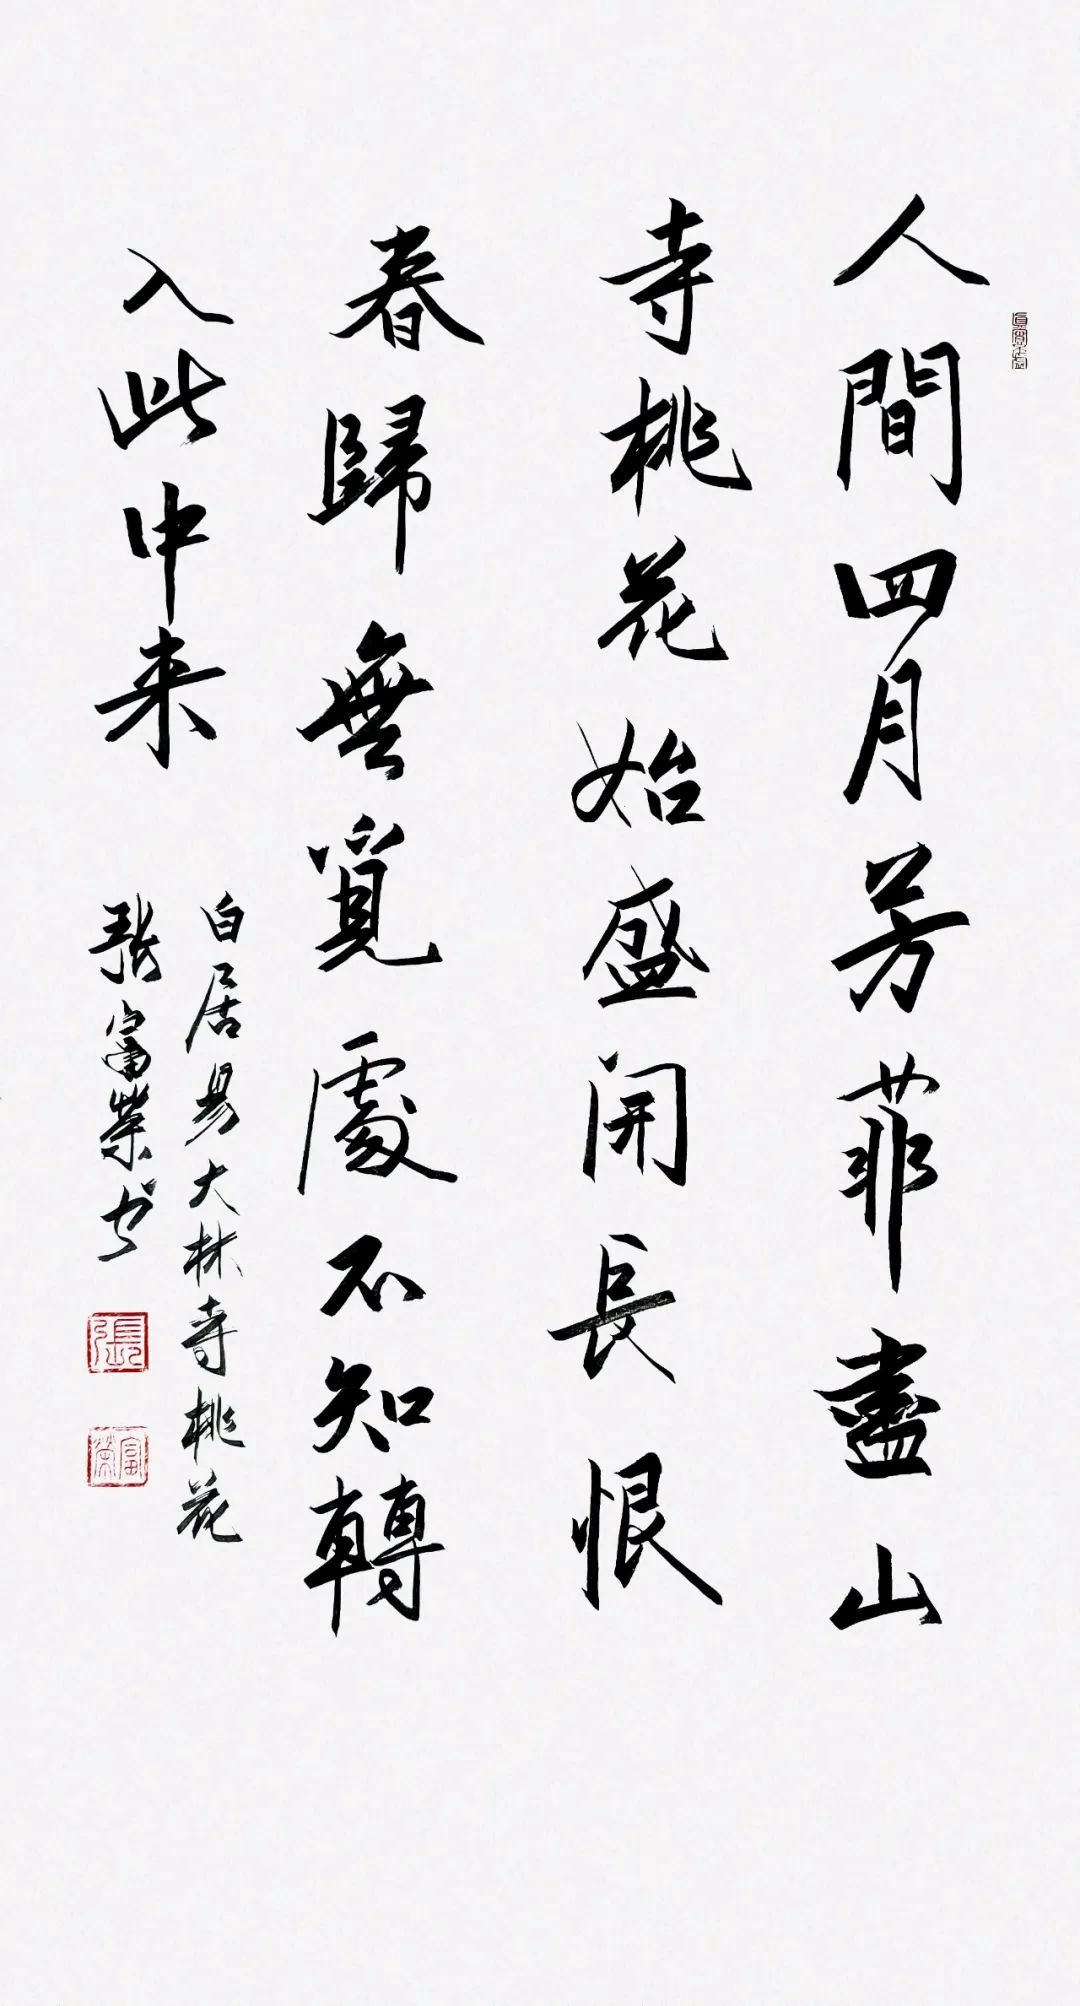 人間四月芳菲盡山
寺桃花始盛開長恨
春歸無覓處不知轉
入此中来
白居易大林寺桃花
張富榮书
張
富榮